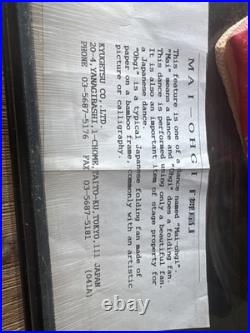 MAI-OHGI
This feature is one of a dance named "Mai-ohgi".
"Mai" means a dance and "Ohgi" does a folding fan.
This dance is performed using only a beautiful fan.
It is also an important item of stage property for
a Japanese dance.
"Ohgi" is a typical Japanese folding fan made of
paper on a bamboo frame, commonly with an artistic
picture or calligraphy.
KYUGETSU CO,.LTD.
20-4,YANAGIBASHI,1-CHOME,TAITO-KU,TOKYO,111 JAPAN
PHONE: 03-5687-5176 FAX: 03-5687-5181
(041A)